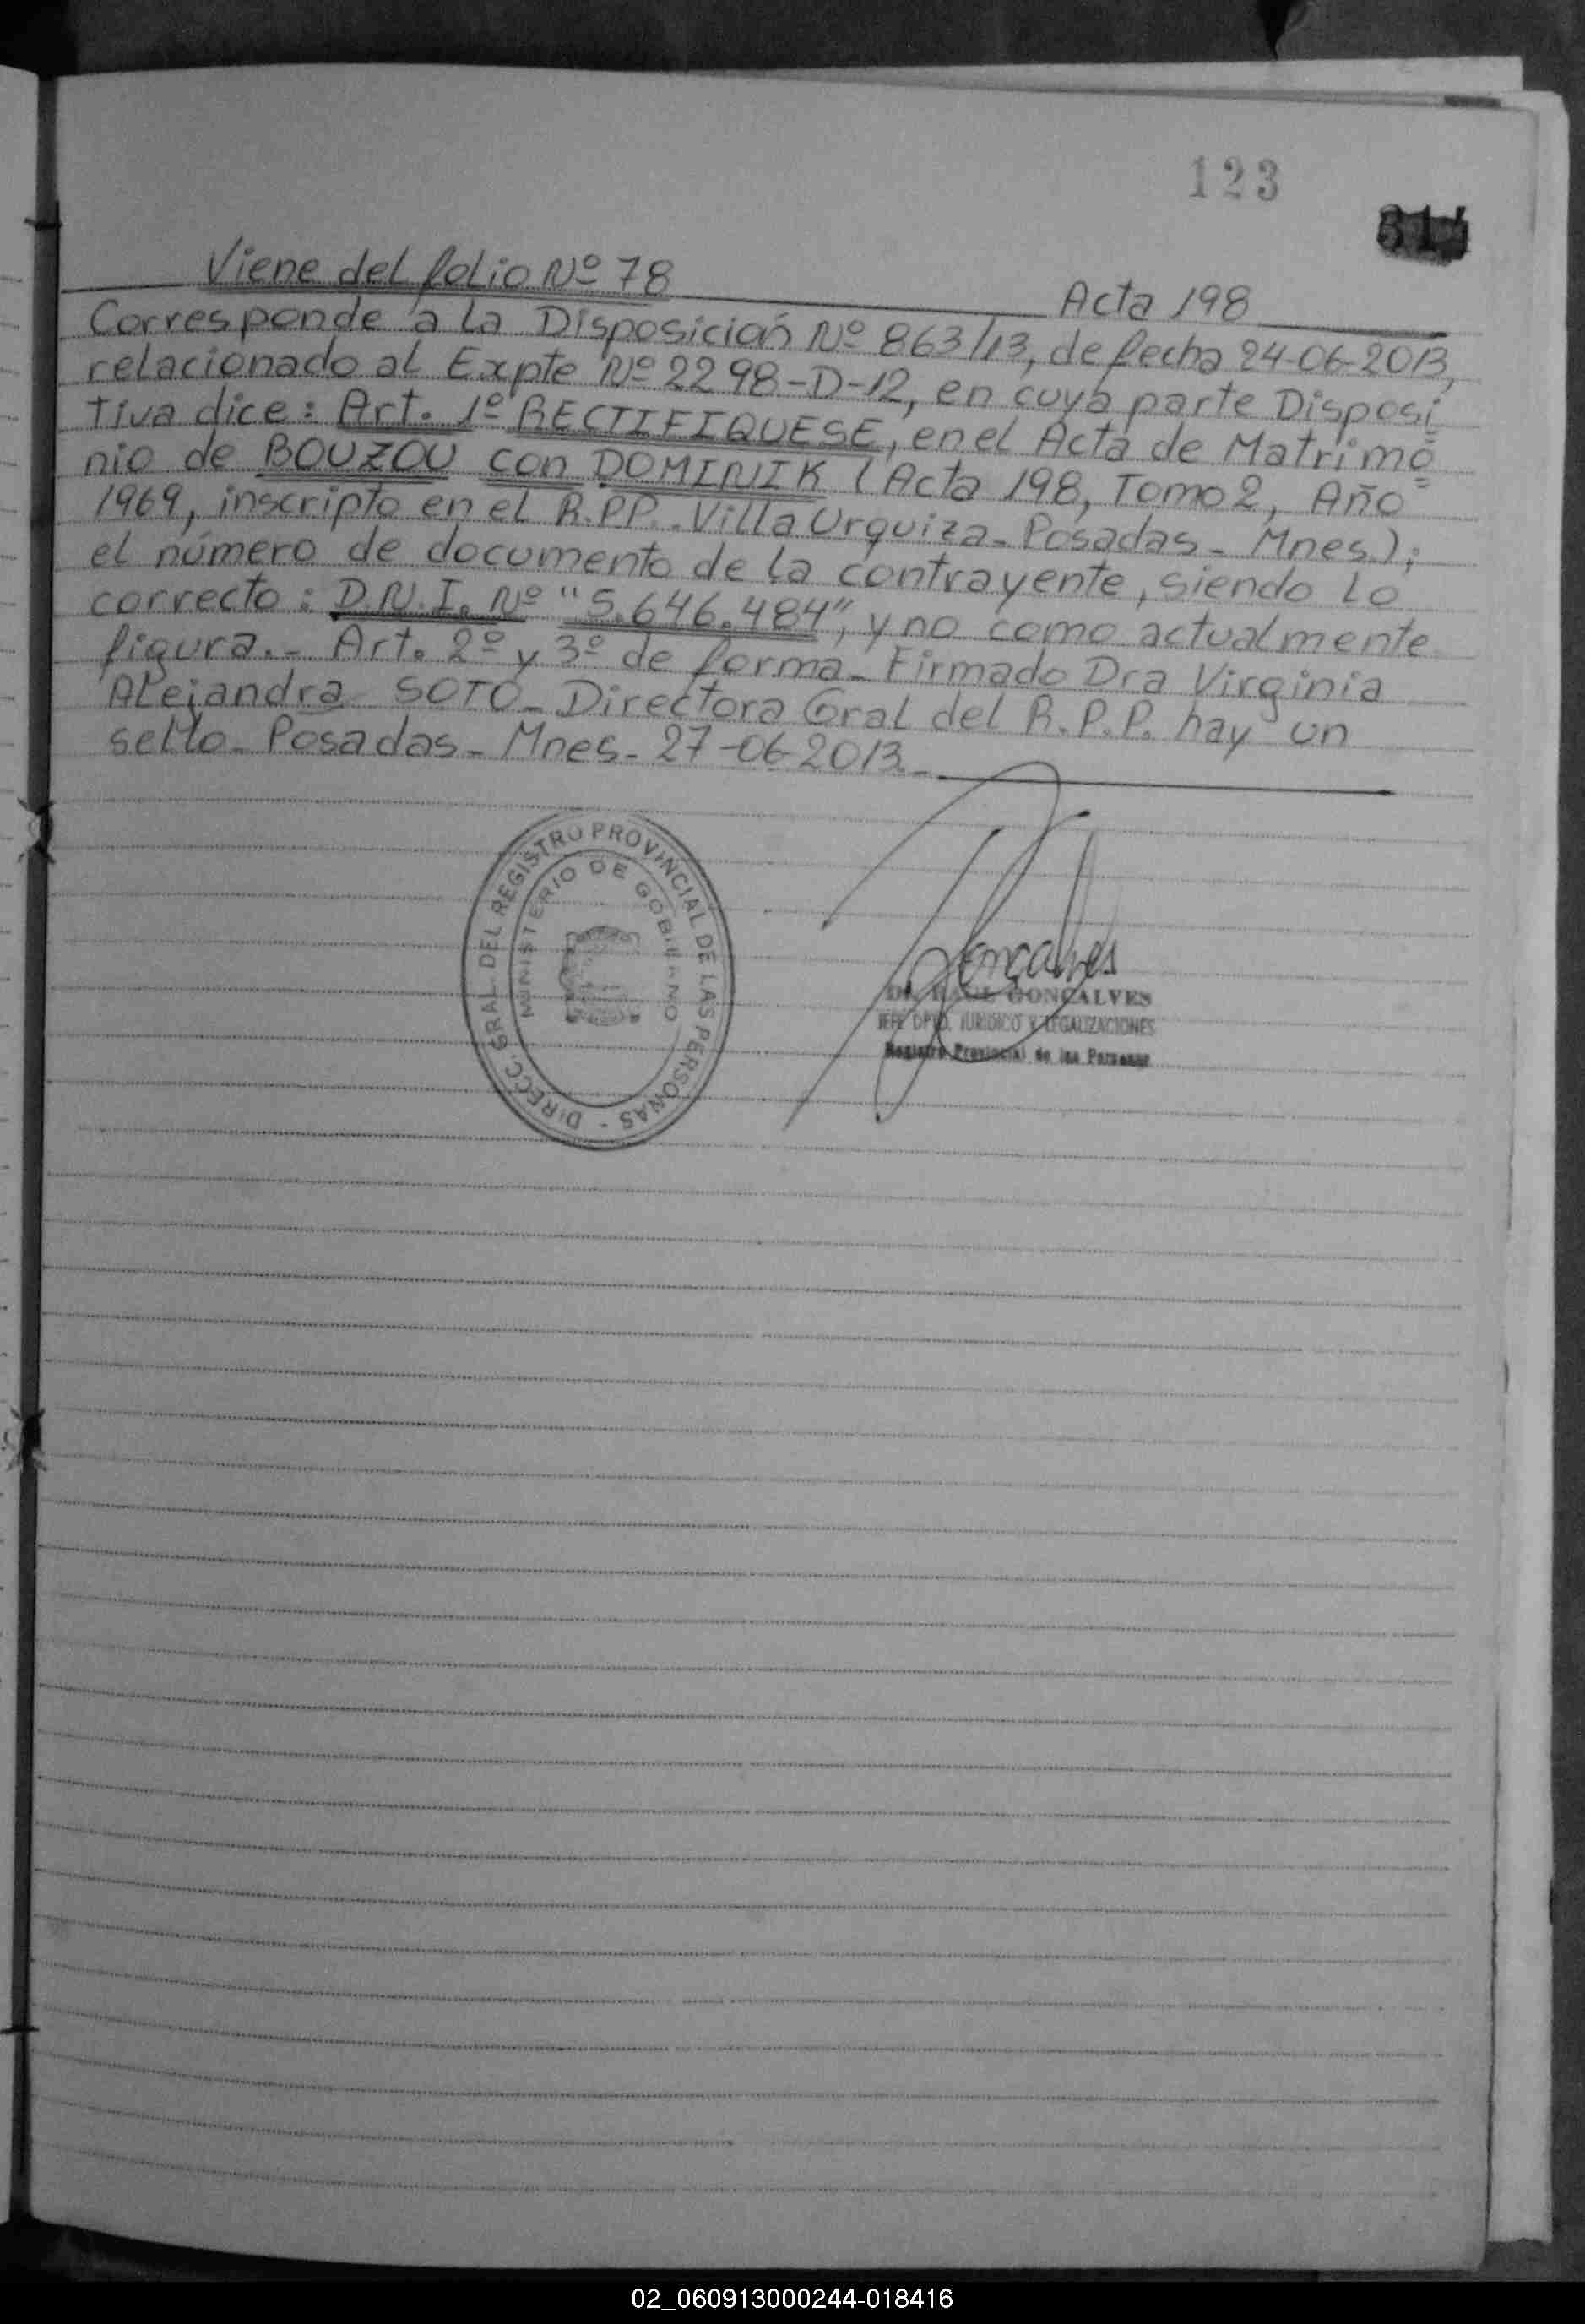 123
314
Viene del folio Nº 78 Acta 198
Corresponde a la Disposición Nº 863/13, de fecha 24-06-2013,
relacionado al Expte Nº 2298-D-12, en cuya parte Disposi
tiva dice: Art. 1º RECTIFIQUESE, en el Acta de Matrimo
nio de BOUZOU con DOMINIK (Acta 198, Tomo 2, Año
1969, inscripto en el R.P.P. Villa Urquiza - Posadas - Mnes.);
el número de documento de la contrayente, siendo lo
correcto: D.N.I. Nº "5.646.484", y no como actualmente
figura.- Art. 2º y 3º de forma - Firmado Dra Virginia
Alejandra SOTO - Directora Gral del R.P.P. hay un
sello - Posadas - Mnes - 27-06-2013.-
DIRECC. GRAL. DEL REGISTRO PROVINCIAL DE LAS PERSONAS -
MINISTERIO DE GOBIERNO
Goncalves
Dr. RAUL GONÇALVES
JEFE DPTO. JURIDICO Y LEGALIZACIONES
Registro Provincial de las Personas
02_060913000244-018416